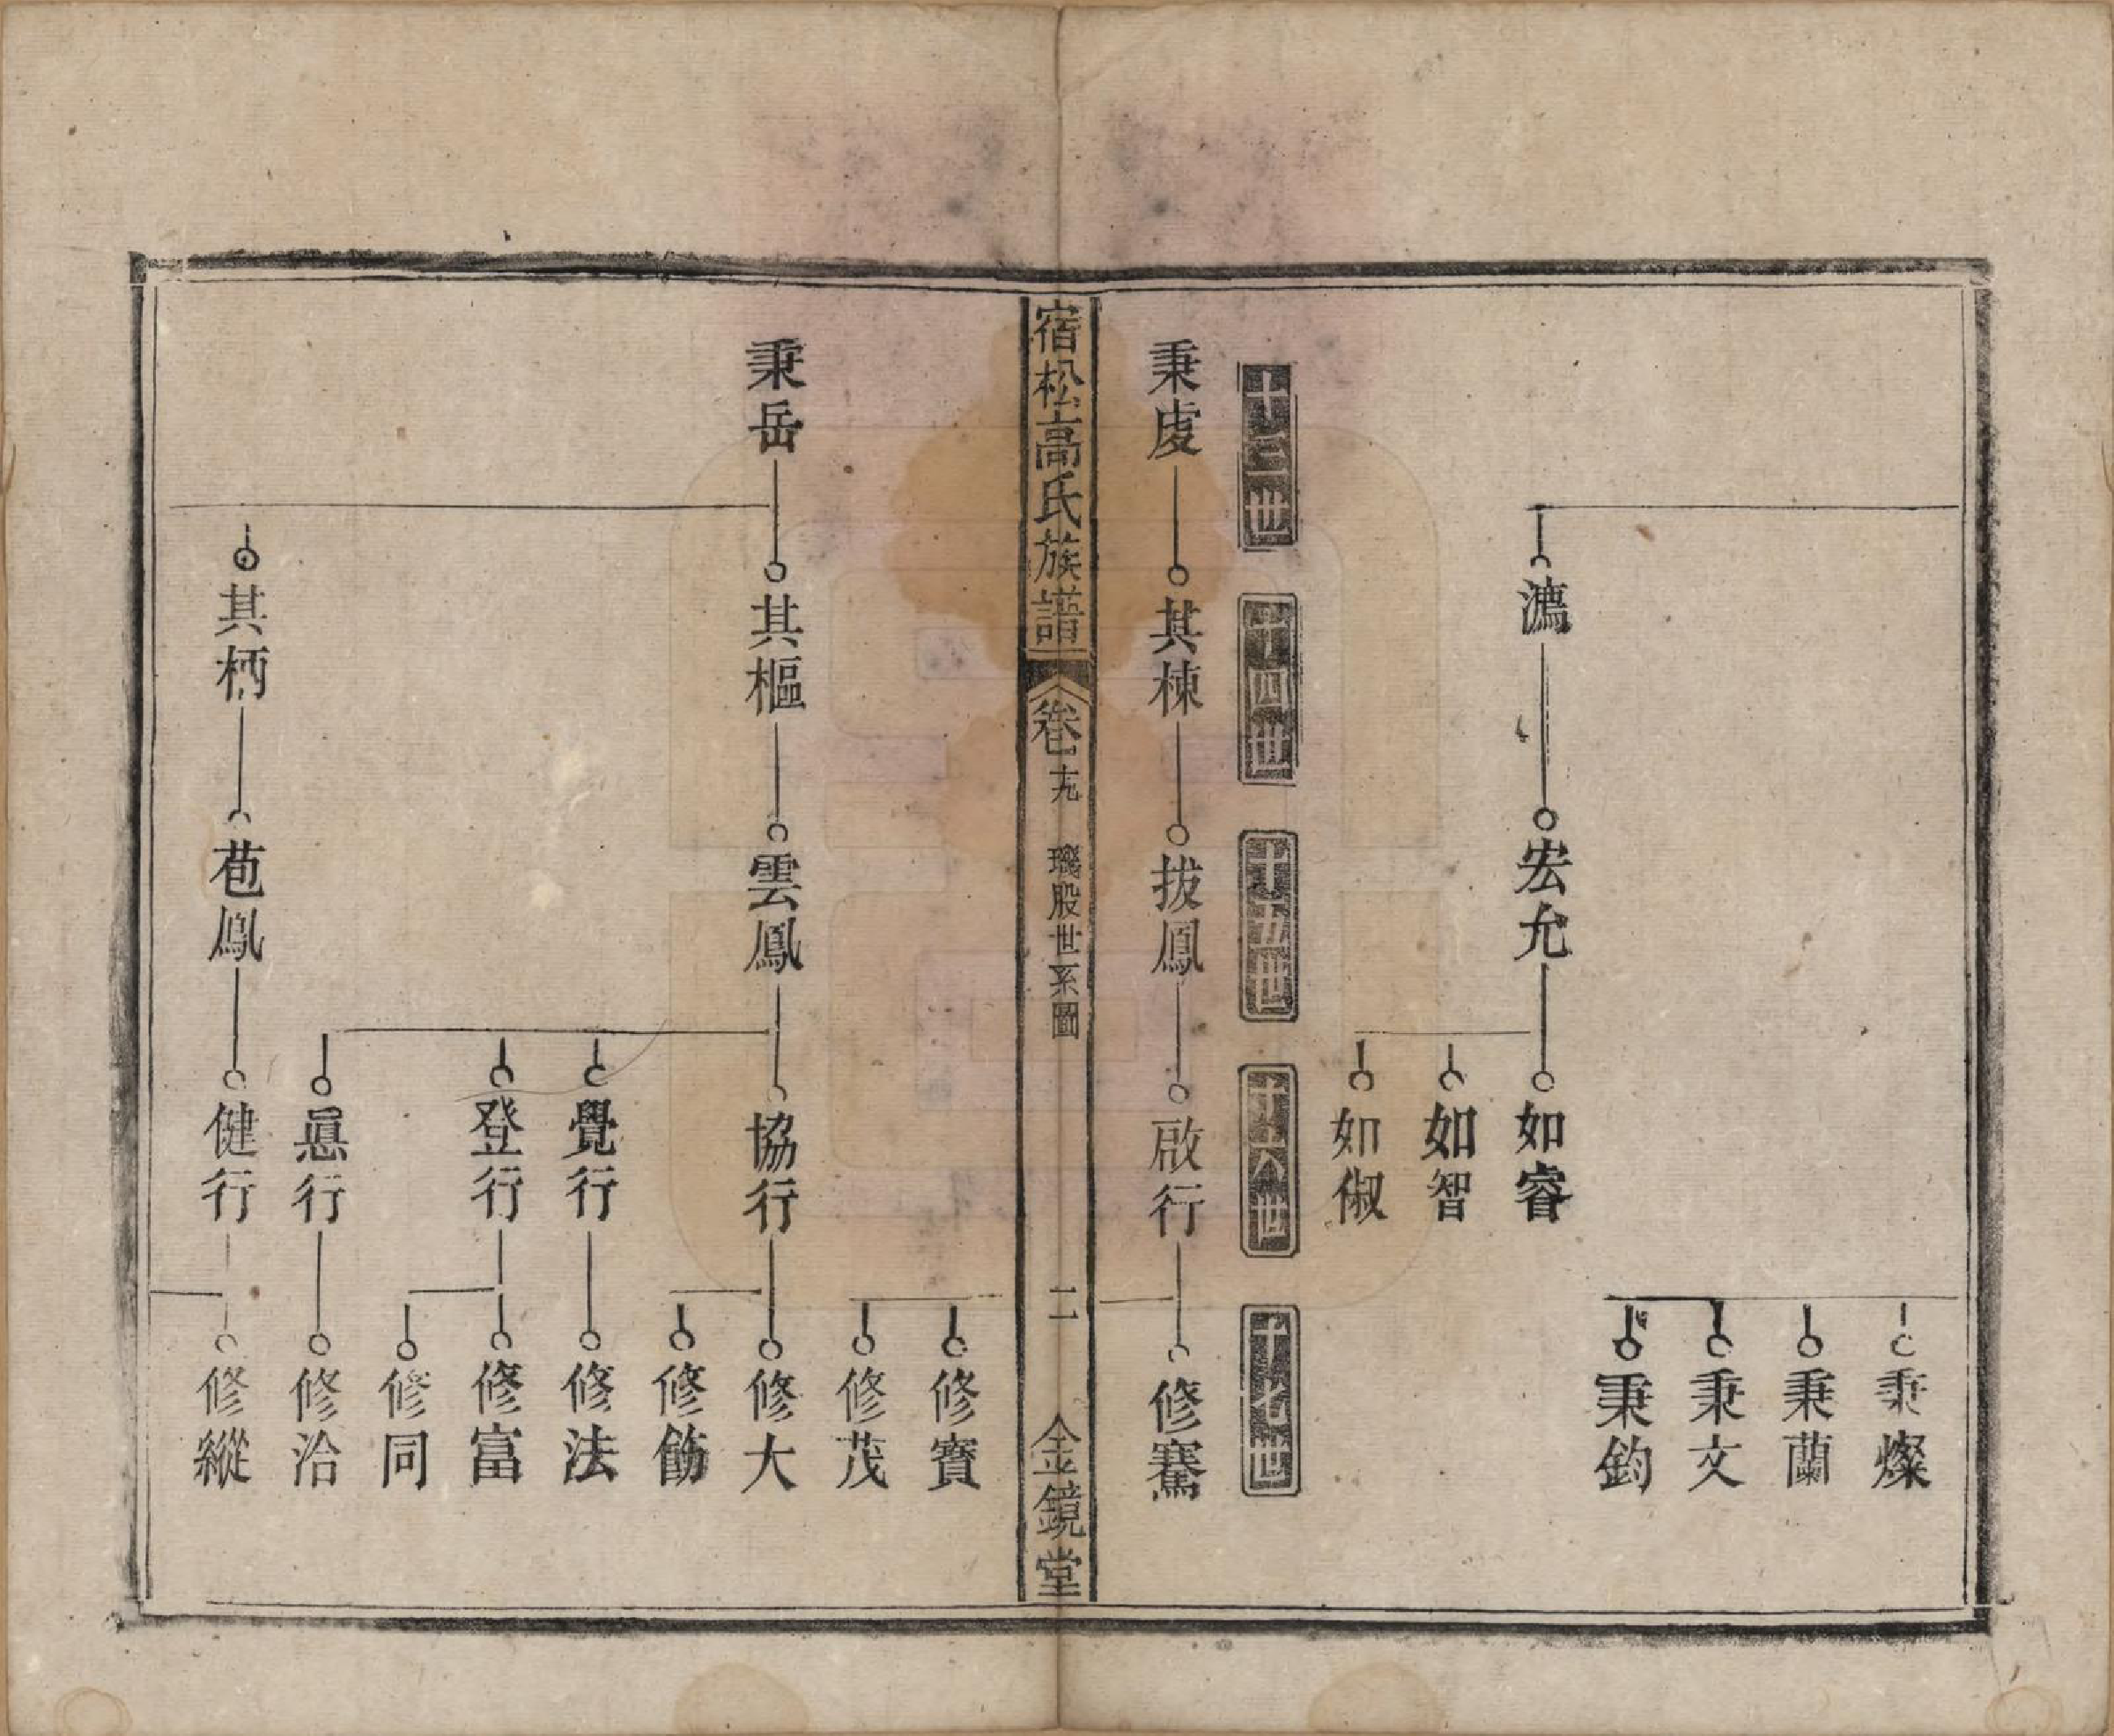 秉燦
秉蘭
秉文
秉鈞
宏允
如睿
如智
如俶
十三世
十四世
十五世
十六世
十七世
秉虔
其棟
拔鳳
啟行
修騫
宿松高氏族譜
卷十九
璣股世系圖
二
金鏡堂
修寶
修茂
秉岳
其樞
雲鳳
協行
修大
修飭
覺行
修法
登行
修富
修同
行
修洽
其柄
苞鳳
健行
修縱